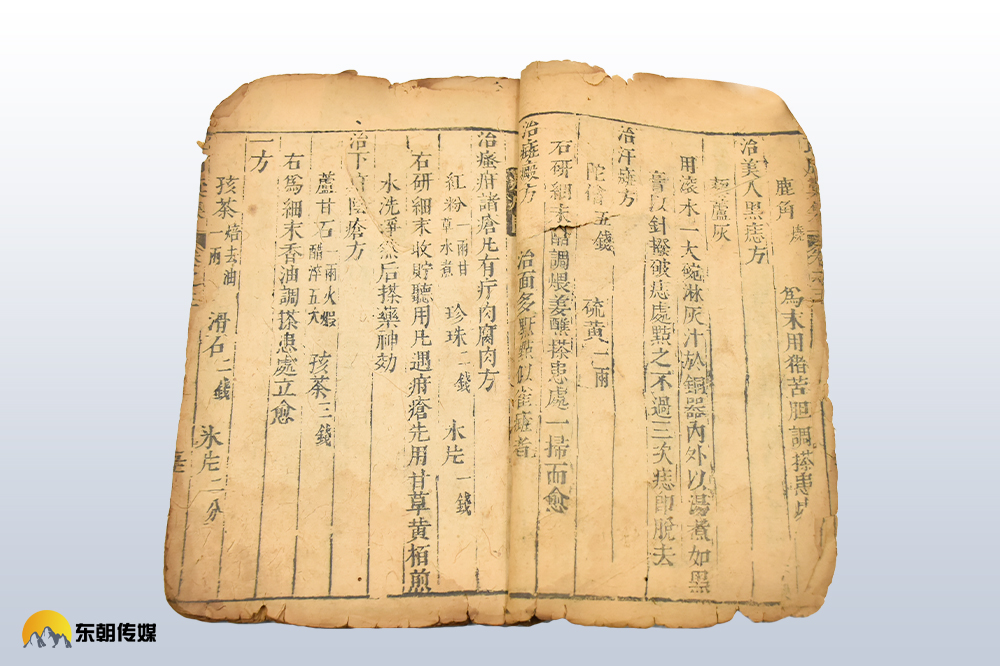 鹿角 煅 爲末用猪苦胆調搽患处
治美人黑痣方
藜蘆灰
用滚水一大碗淋灰汁於銅器內外以湯煮如黑
膏以針撥破痣處點之不過三次痣即脫去
治汗斑方
陀僧 五錢 硫黃 一兩
右研細末醋調煨姜蘸搽患處一掃而愈
治斑癜方 治面多點以雀斑者
治瘙疳諸瘡凡有疔肉腐肉方
紅粉 一兩甘草水煮 珍珠 二錢 氷片 一錢
右研細末收貯聽用凡遇疳瘡先用甘草黃栢煎
水洗淨然后搽藥神効
治下疳陰瘡方
蘆甘石 一兩火煆醋淬五次 孩茶 三錢
右爲細末香油調搽患處立愈
一方
孩茶 一兩焙去油 滑石 二錢 氷片 二分
东朝传媒